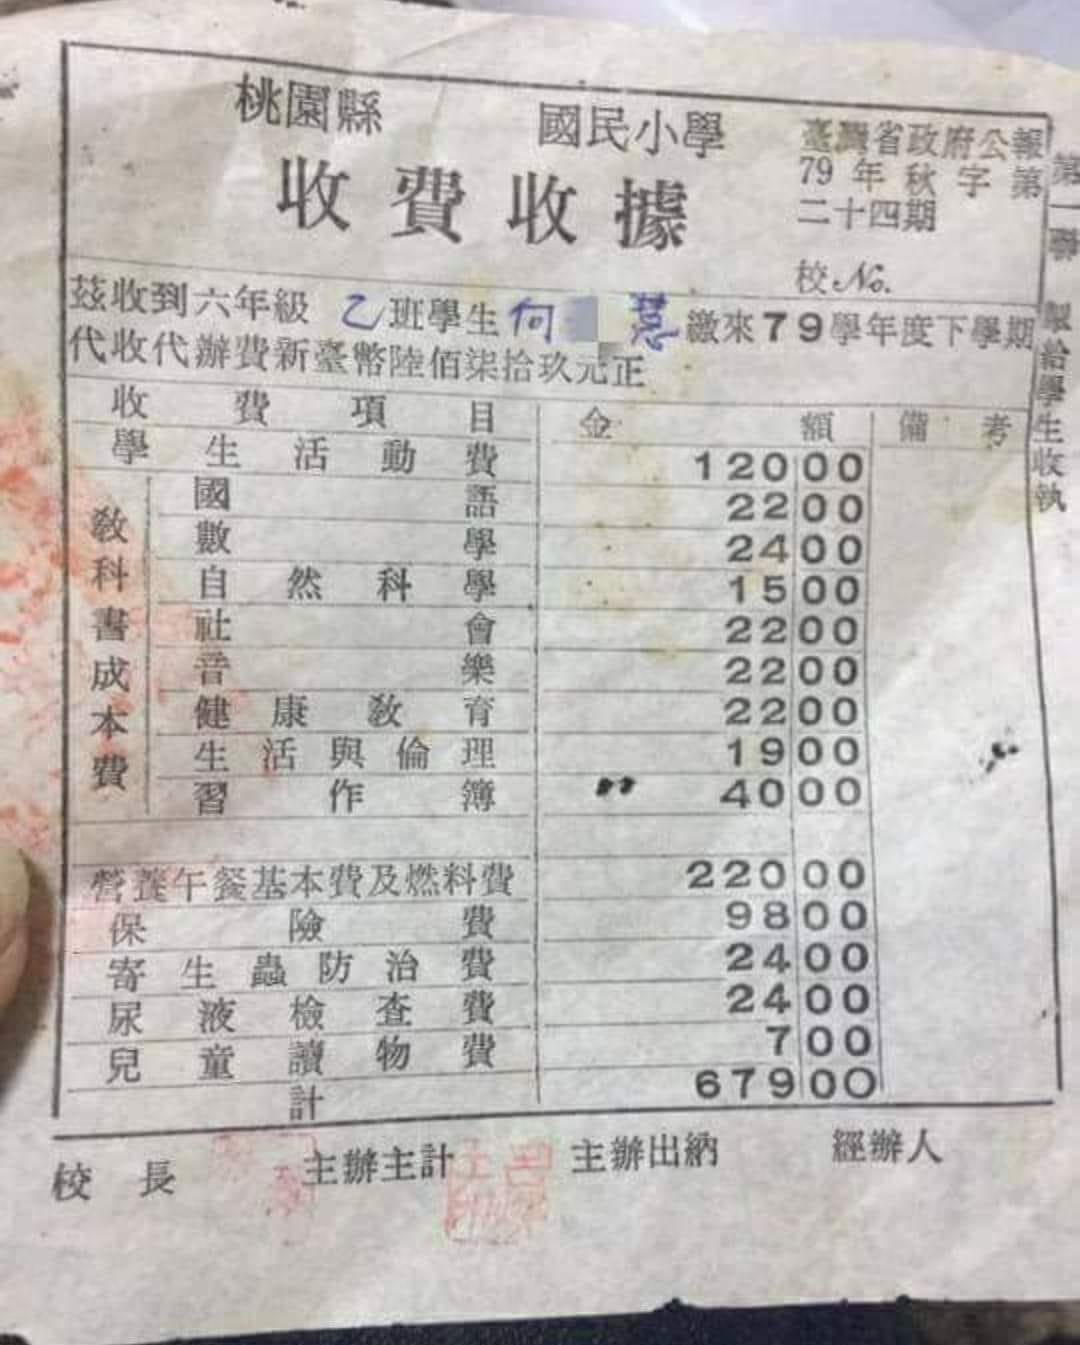 桃園縣 國民小學
收費收據
臺灣省政府公報
79年秋字第
二十四期
校No.
第一聯 製給學生收執
茲收到六年級 乙班學生何 慧繳來79學年度下學期
代收代辦費新臺幣陸佰柒拾玖元正
收費項目 金額 備考
學生活動費 12000
教科書成本費
國語 2200
數學 2400
自然科學 1500
社會 2200
音樂 2200
健康教育 2200
生活與倫理 1900
習作簿 4000
營養午餐基本費及燃料費 22000
保險費 9800
寄生蟲防治費 2400
尿液檢查費 2400
兒童讀物費 700
計 67900
校長 主辦主計 主辦出納 經辦人